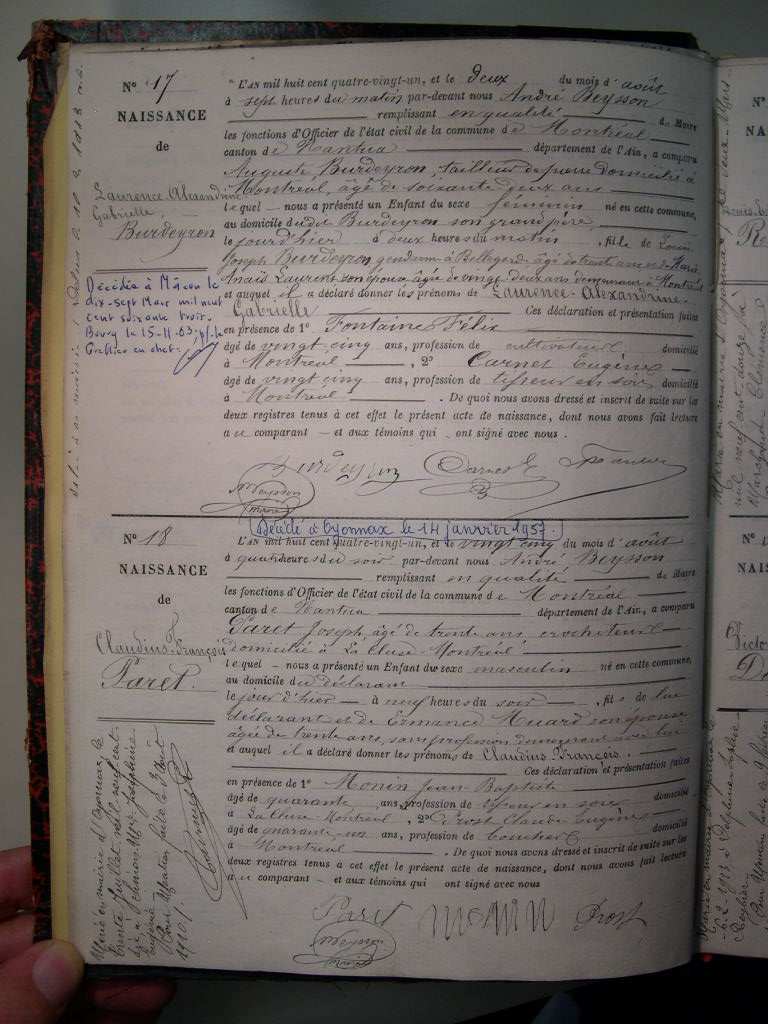 N° 17
NAISSANCE
de
Laurence Alexandrine
Gabrielle
Burdeyron
Décédée à Mâcon le
dix-sept Mars mil neuf
cent soixante trois.
Bourg le 15-11-63
Greffier en chef
L'AN mil huit cent quatre-vingt-un, et le deux du mois d'août
à sept heures du matin par-devant nous André Beysson
remplissant en qualité de Maire
les fonctions d'Officier de l'état civil de la commune de Montréal
canton de Nantua département de l'Ain, a comparu
Auguste Burdeyron, tailleur de pierre domicilié à
Montréal, âgé de soixante deux ans
lequel nous a présenté un Enfant du sexe féminin né en cette commune,
au domicile dudit Burdeyron son grand père,
le jourd'hier à deux heures du matin, fille de Louis
Joseph Burdeyron gendarme à Bellegarde âgé de trente ans et de Marie
Anaïs Laurent son épouse âgée de vingt deux ans demeurant à Montréal
et auquel il a déclaré donner les prénoms de Laurence-Alexandrine-
Gabrielle Ces déclaration et présentation faites
en présence de 1° Fontaine Félix
âgé de vingt cinq ans, profession de cultivateur domicilié
à Montréal, 2° Carnet Eugène
âgé de vingt cinq ans, profession de tisseur en soie domicilié
à Montréal. De quoi nous avons dressé et inscrit de suite sur les
deux registres tenus à cet effet le présent acte de naissance, dont nous avons fait lecture
au comparant et aux témoins qui ont signé avec nous.
Burdeyron Carnet E
Beysson
maire
N° 18
NAISSANCE
de
Claudius-François
Paret.
Décédé à Oyonnax le 14 janvier 1957.
L'AN mil huit cent quatre-vingt-un, et le vingt cinq du mois d'août
à quatre heures du soir par-devant nous André Beysson
remplissant en qualité de Maire
les fonctions d'Officier de l'état civil de la commune de Montréal
canton de Nantua département de l'Ain, a comparu
Paret Joseph, âgé de trente ans crocheteur
domicilié à La Cluse-Montréal
lequel nous a présenté un Enfant du sexe masculin né en cette commune,
au domicile du déclarant
le jour d'hier à neuf heures du soir, fils de lui
déclarant et de Ermance Huard son épouse
âgée de trente ans, sans profession demeurant avec lui
et auquel il a déclaré donner les prénoms de Claudius-François.
Ces déclaration et présentation faites
en présence de 1° Monin Jean-Baptiste
âgé de quarante ans, profession de tisseur en soie domicilié
à La Cluse-Montréal, 2° Prost Claude Eugène
âgé de quarante-un ans, profession de boucher domicilié
à Montréal. De quoi nous avons dressé et inscrit de suite sur les
deux registres tenus à cet effet le présent acte de naissance, dont nous avons fait lecture
au comparant et aux témoins qui ont signé avec nous
Paret Monin Prost
Beysson
maire
Marié en mairie d'Oyonnax, le
trente Juillet mil neuf cent
Joséphine
Eugénie
Pour Mention faite le 3 Août